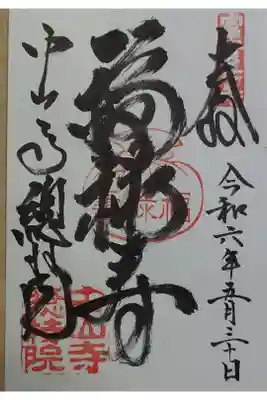 奉拝
令和六年五月三十日
福禄寿
中山寺
總持院
中山寺
総持院